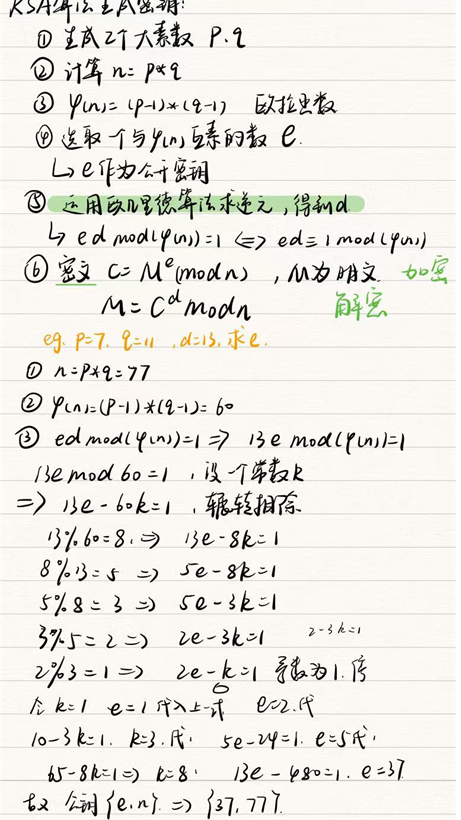 RSA算法生成密钥:
① 生成2个大素数 P.q
② 计算 n=p*q
③ φ(n)=(p-1)*(q-1) 欧拉函数
④ 选取一个与φ(n)互素的数 e.
↳ e作为公开密钥
⑤ 运用欧几里德算法求逆元,得到d
↳ ed mod(φ(n))=1 <=> ed≡1 mod(φ(n))
⑥ 密文 C=M^e(mod n) ,M为明文. 加密
M=C^d mod n 解密
eg. p=7. q=11 ,d=13,求e.
① n=p*q=77
② φ(n)=(p-1)*(q-1)=60
③ ed mod(φ(n))=1 => 13e mod(φ(n))=1
13e mod 60=1 ,设一个常数k
=> 13e-60k=1 ,辗转相除
13%60=8 => 13e-8k=1
8%13=5 => 5e-8k=1
5%8=3 => 5e-3k=1
3%5=2 => 2e-3k=1 2-3k=1
2%3=1 => 2e-k=1 系数为1.停
令k=1 e=1代入上一式 e=2.代
10-3k=1. k=3.代. 5e-24=1. e=5代.
65-8k=1 => k=8. 13e-480=1. e=37.
故 公钥{e,n} => {37,77}.